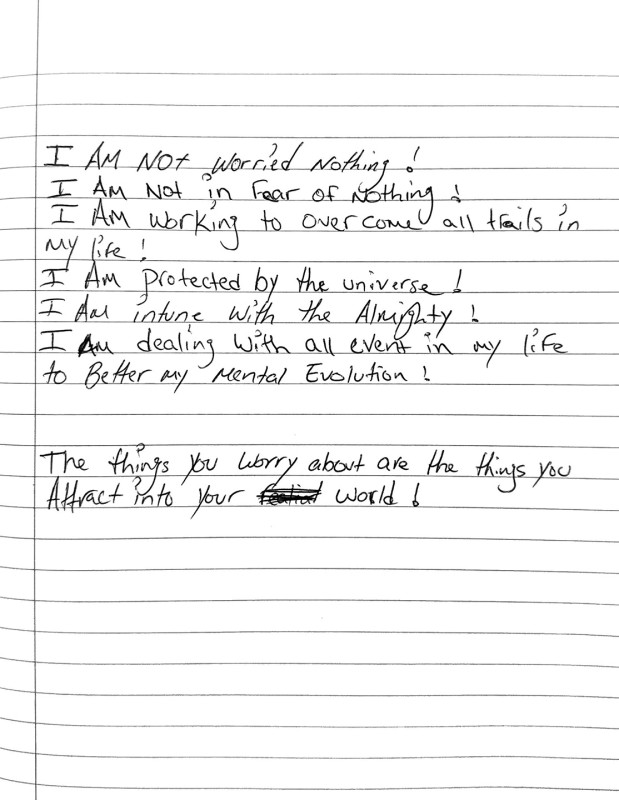 I AM NOT Worried Nothing !
I AM Not in Fear of Nothing !
I AM working to overcome all trails in
my life !
I Am protected by the universe !
I Am intune with the Almighty !
I Am dealing with all event in my life
to Better my Mental Evolution !
The things you worry about are the things you
Attract into your world !